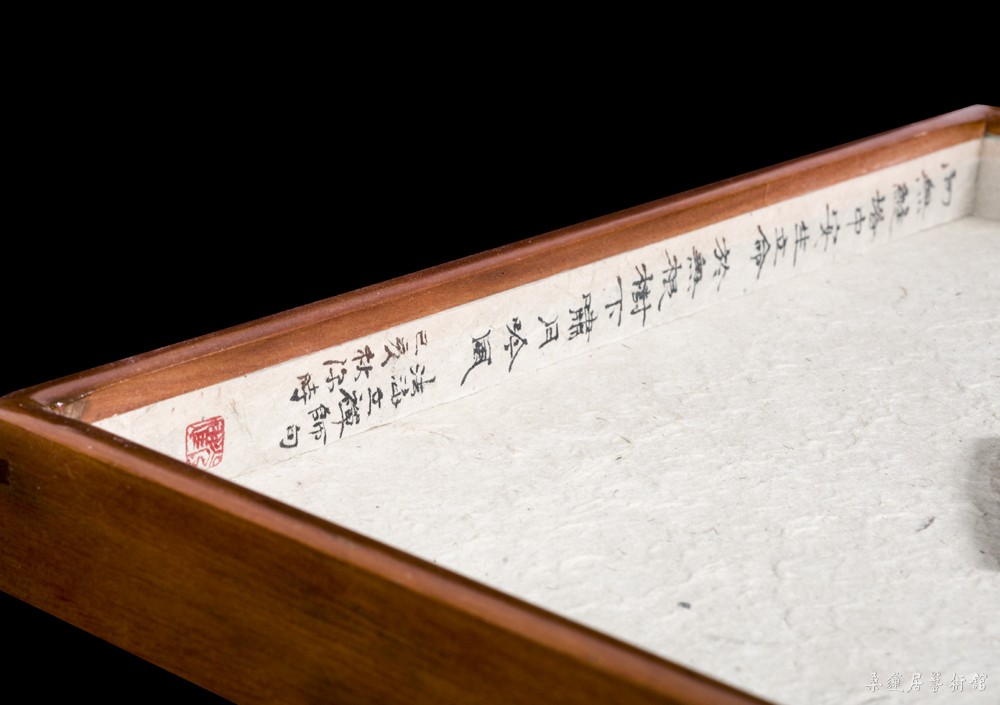 向無縫塔中安生立命於無根樹下嘯月吟風
法海立禪師句
己亥秋深時
桑蓮居藝術館